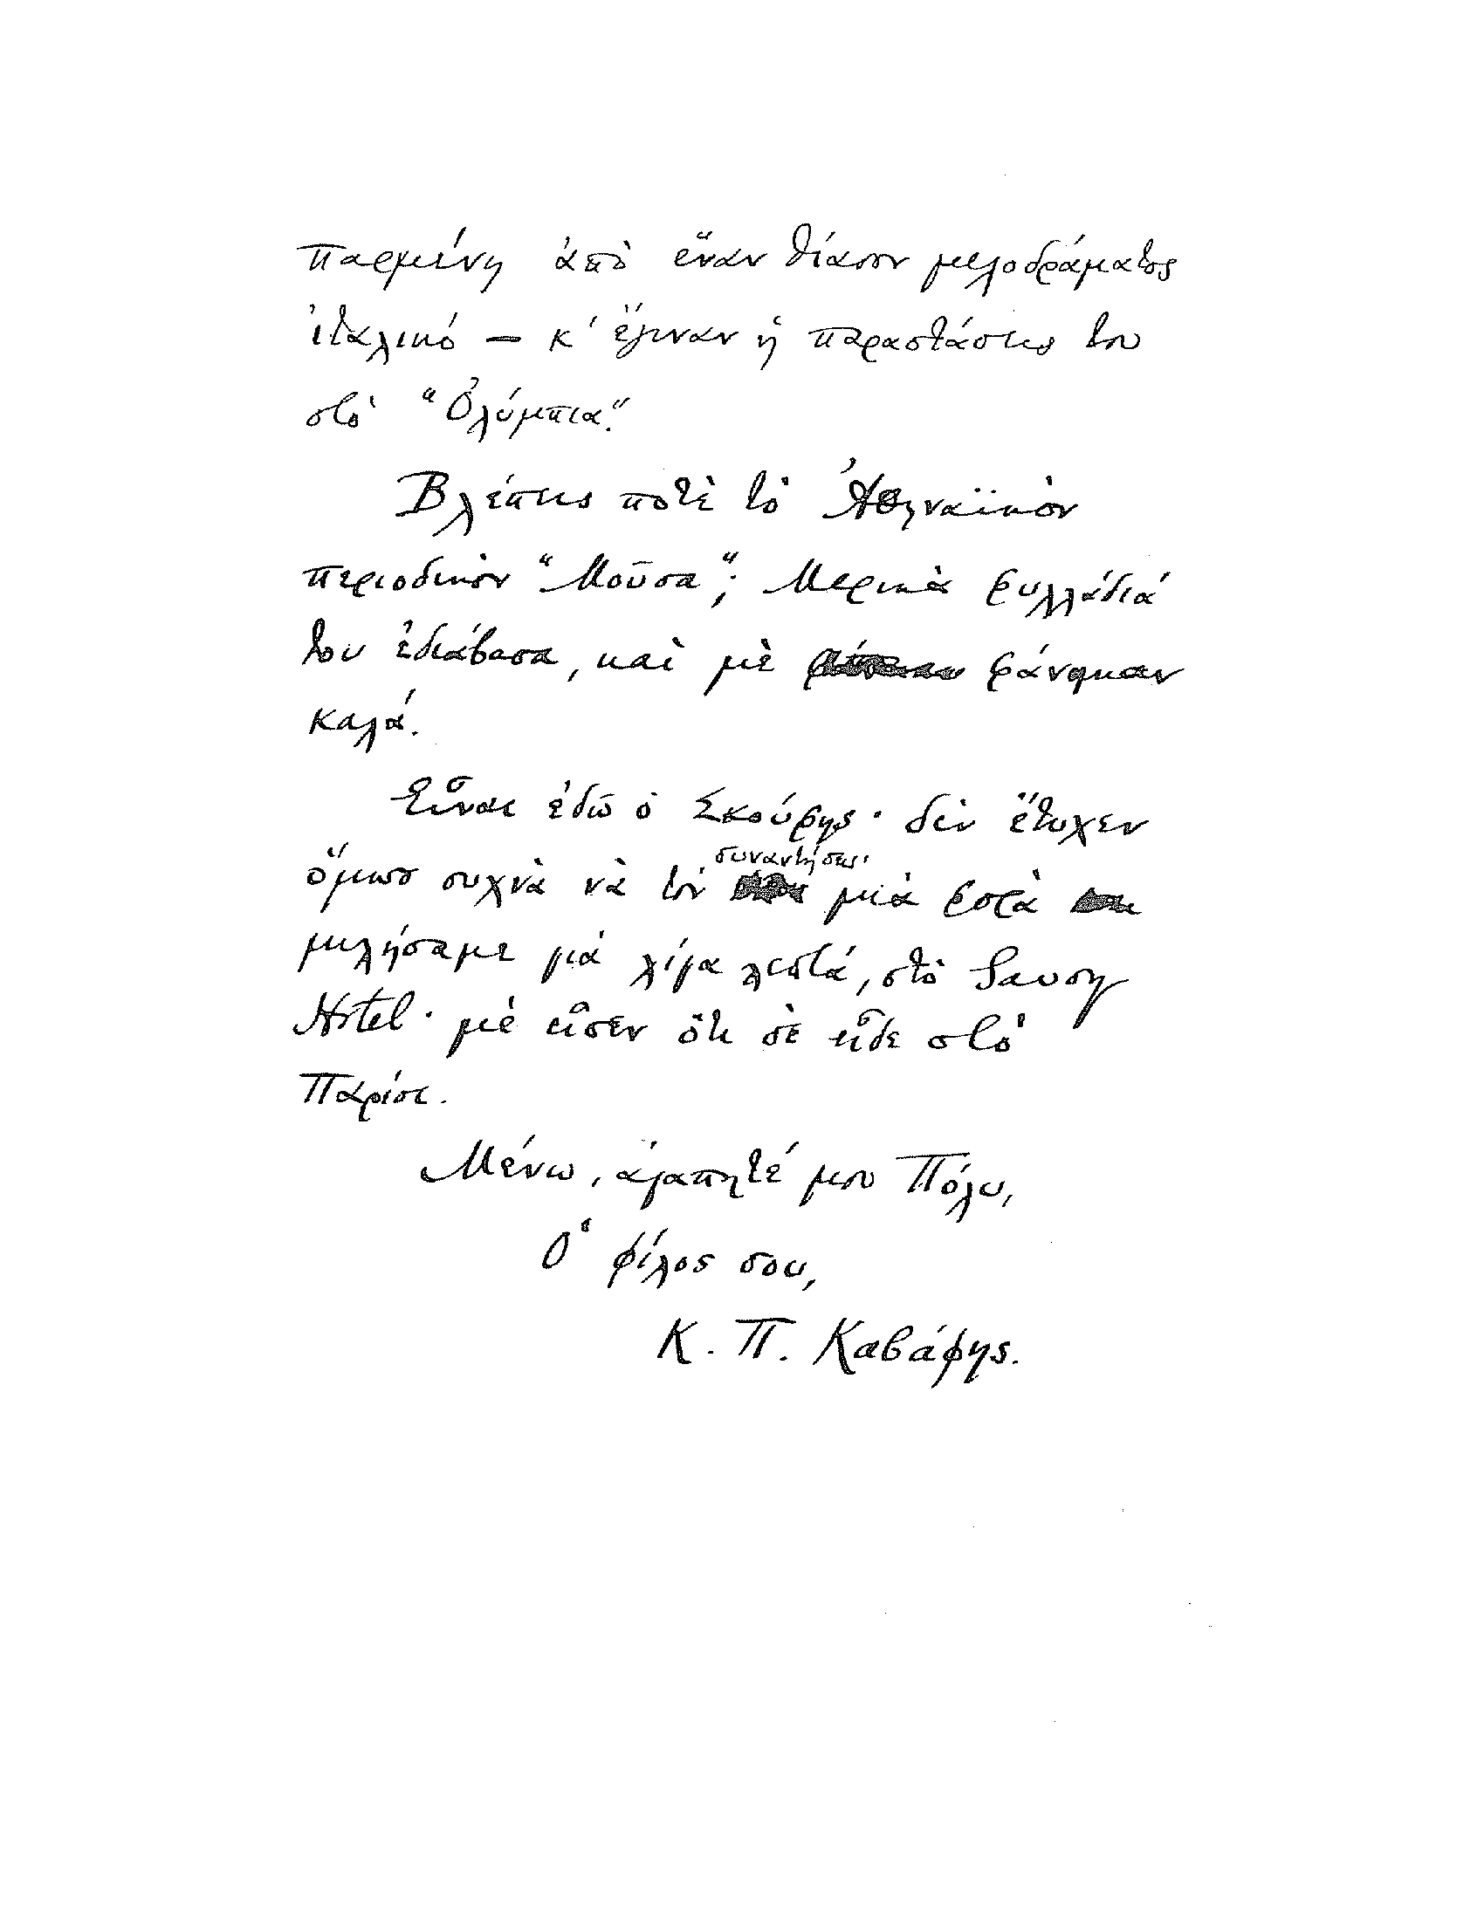 παρμένη ἀπὸ ἕναν θίασον μελοδράματος
ἰταλικό — κ' ἔγιναν ἡ παραστάσεις του
στὸ "Ὀλύμπια."
Βλέπεις ποτὲ τὸ Ἀθηναϊκὸν
περιοδικὸν "Μοῦσα"; Μερικὰ φυλλάδιά
του ἐδιάβασα, καὶ μὲ φάνηκαν
καλά.
Εἶναι ἐδῶ ὁ Σκούφης· δὲν ἔτυχεν
ὅμως συχνὰ νὰ τὸν συναντήσω· μιὰ φορὰ
μιλήσαμε γιὰ λίγα λεπτά, στὸ Savoy
Hotel· μὲ εἶπεν ὅτι σὲ εἶδε στὸ
Παρίσι.
Μένω, ἀγαπητέ μου Πόλυ,
Ὁ φίλος σου,
Κ. Π. Καβάφης.